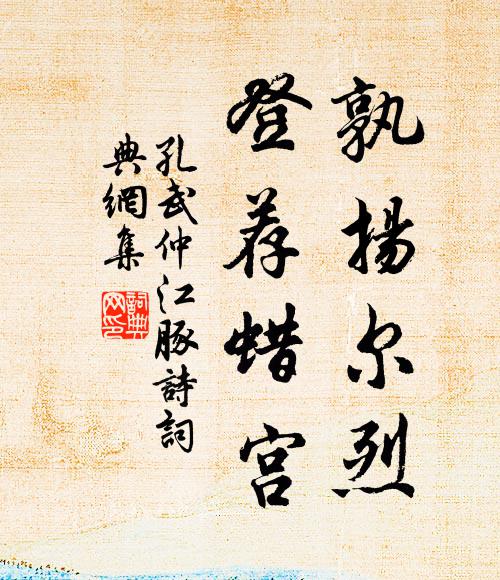 孰揚尔烈
登荐蜡宫
孔武仲江豚詩詞
典網集
詞典网印